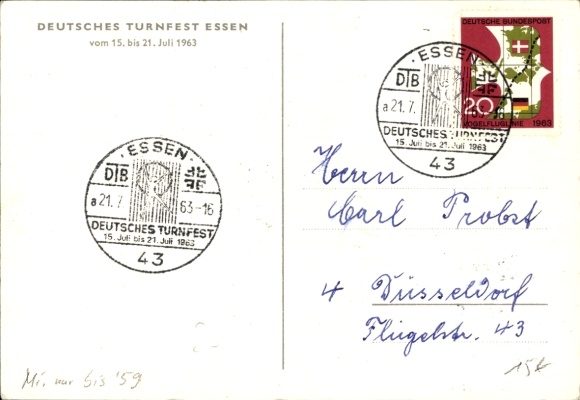 DEUTSCHES TURNFEST ESSEN
vom 15. bis 21. Juli 1963
DEUTSCHE BUNDESPOST
20
VOGELFLUGLINIE 1963
· ESSEN ·
DTB
a 21.7. 63-16
DEUTSCHES TURNFEST
15. Juli bis 21. Juli 1963
43
· ESSEN ·
DTB
a 21.7. 63-16
DEUTSCHES TURNFEST
15. Juli bis 21. Juli 1963
43
Herrn
Carl Probst
4 Düsseldorf
Flügelstr. 43
Mi. nur bis '59